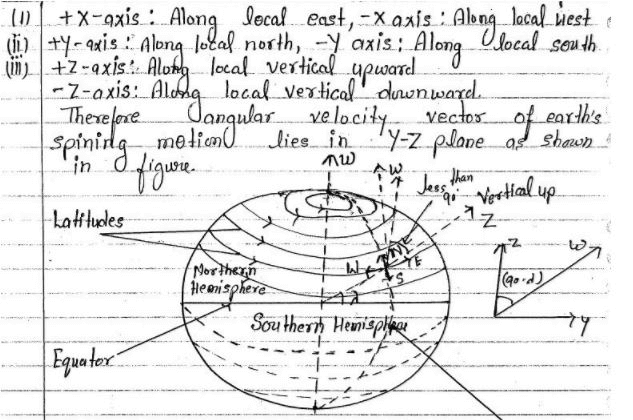 (i) +X-axis : Along local east, -X axis : Along local west
(ii) +Y-axis : Along local north, -Y axis : Along local south
(iii) +Z-axis : Along local vertical upward
-Z-axis : Along local vertical downward.
Therefore angular velocity vector of earth's
spining motion lies in Y-Z plane as shown
in figure.
ω
ω
less than
90°
Vertical up
Z
Latitudes
N
E
W
S
Northern
Hemisphere
λ
Z
ω
(90-λ)
Y
Southern Hemisphere
Equator